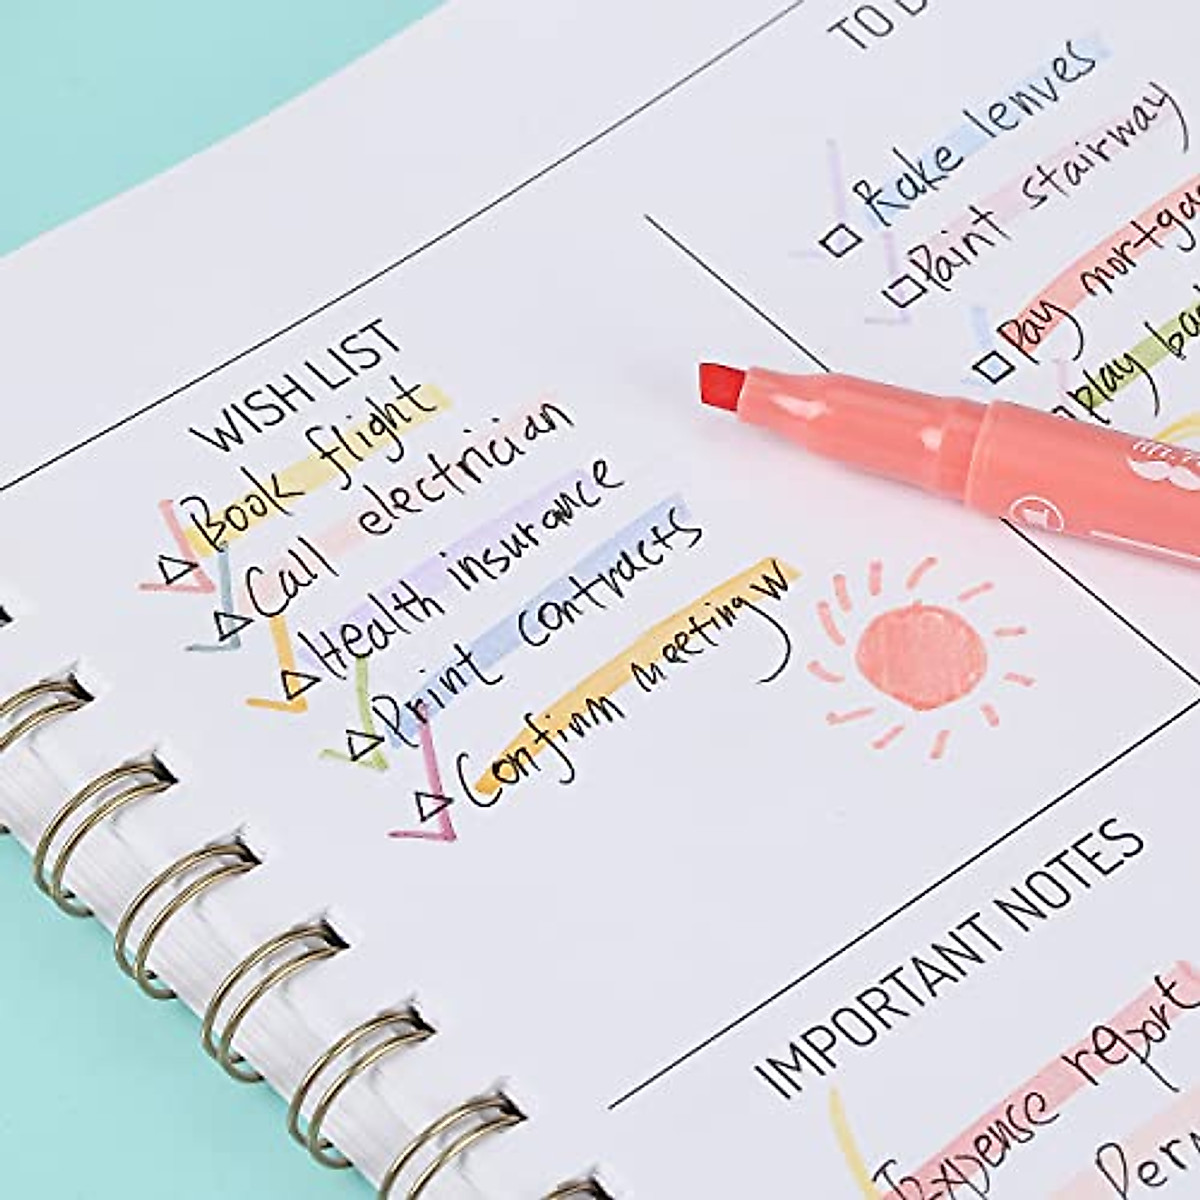 WISH LIST
Book flight
Call electrician
Health insurance
Print contracts
Confirm meeting w
TO D
Rake lenves
Paint stairway
Pay mortga
play ba
IMPORTANT NOTES
Expense report
Per